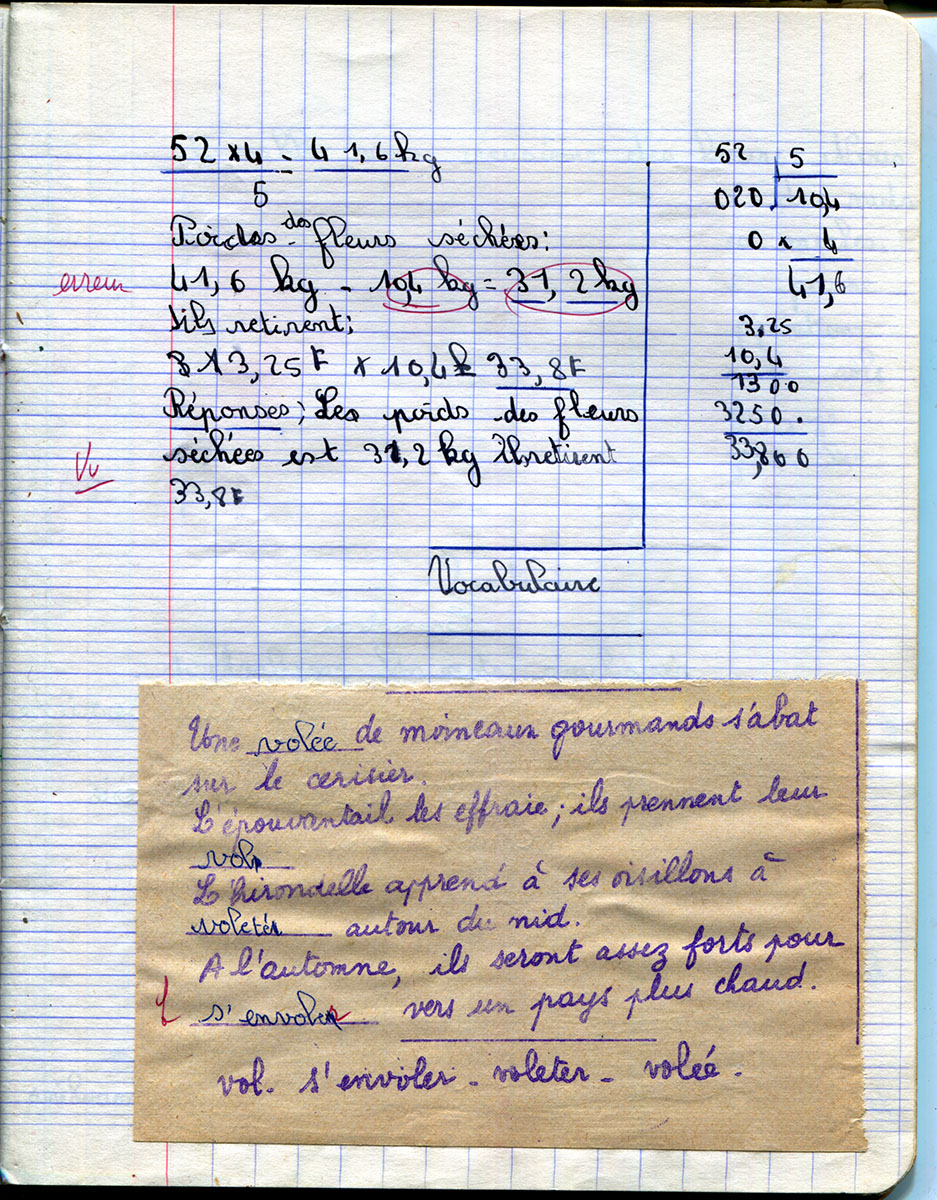 52 x4 = 41,6 kg
5
Poids des fleurs séchées:
erreur 41,6 kg - 10,4 kg = 31,2 kg
Ils retirent:
3,25 F x 10,4 = 33,8F
Réponses; Les poids des fleurs
Vu séchées est 31,2 kg Ils retirent
33,8F
52 5
020. 10,4
0 x 4
41,6
3,25
10,4
1300
3250.
33,800
Vocabulaire
Une volée de moineaux gourmands s'abat
sur le cerisier.
L'épouvantail les effraie; ils prennent leur
vol
L'hirondelle apprend à ses oisillons à
voleter autour du nid.
A l'automne, ils seront assez forts pour
s'envoler vers un pays plus chaud.
vol - s'envoler - voleter - volée.